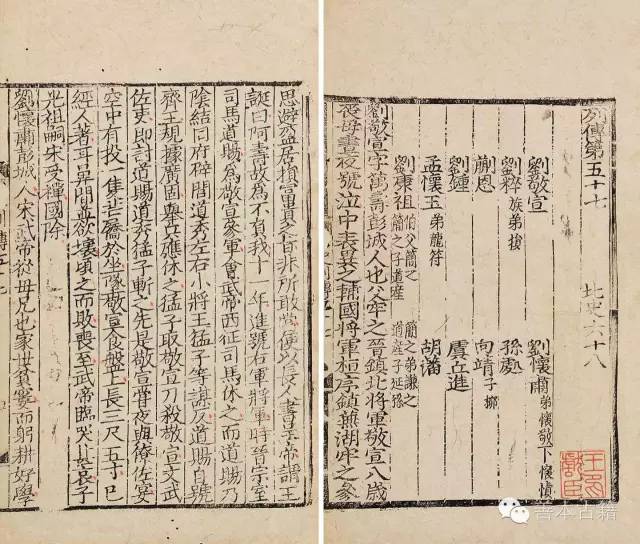 列傳第五十七 北史六十八
劉敬宣 劉懷肅 弟懷敬 下懷慎
劉粹 族弟損 孫處
蒯恩 向靖 子柳
劉鍾 虞丘進
孟懷玉 弟龍符 胡藩
劉康祖 伯父簡之 簡之弟謙之 簡之子道產 道產子延孫
劉敬宣字萬壽彭城人也父牢之晉鎮北將軍敬宣八歲
喪母晝夜號泣中表異之輔國將軍桓序鎮蕪湖牢之參
思避盈居損富貴之旨非所敢當便以長人書呈帝謂王
誕曰阿壽故為不負我十一年進號右軍將軍時晉宗室
司馬道賜為敬宣參軍會武帝西征司馬休之而道賜乃
陰結同府辟閭道秀左右小將王猛子等謀反道賜自號
齊王規據廣固舉兵應休之猛子取敬宣刀殺敬宣文武
佐吏即討道賜道秀猛子斬之先是敬宣嘗夜與僚佐宴
空中有投一隻芒屩於坐墜敬宣食盤上長三尺五寸已
經人著耳鼻間並欲壞頃之而敗喪至武帝臨哭甚哀子
光祖嗣宋受禪國除
劉懷肅彭城人宋武帝從母兄也家世貧窶而躬耕好學
善本古籍